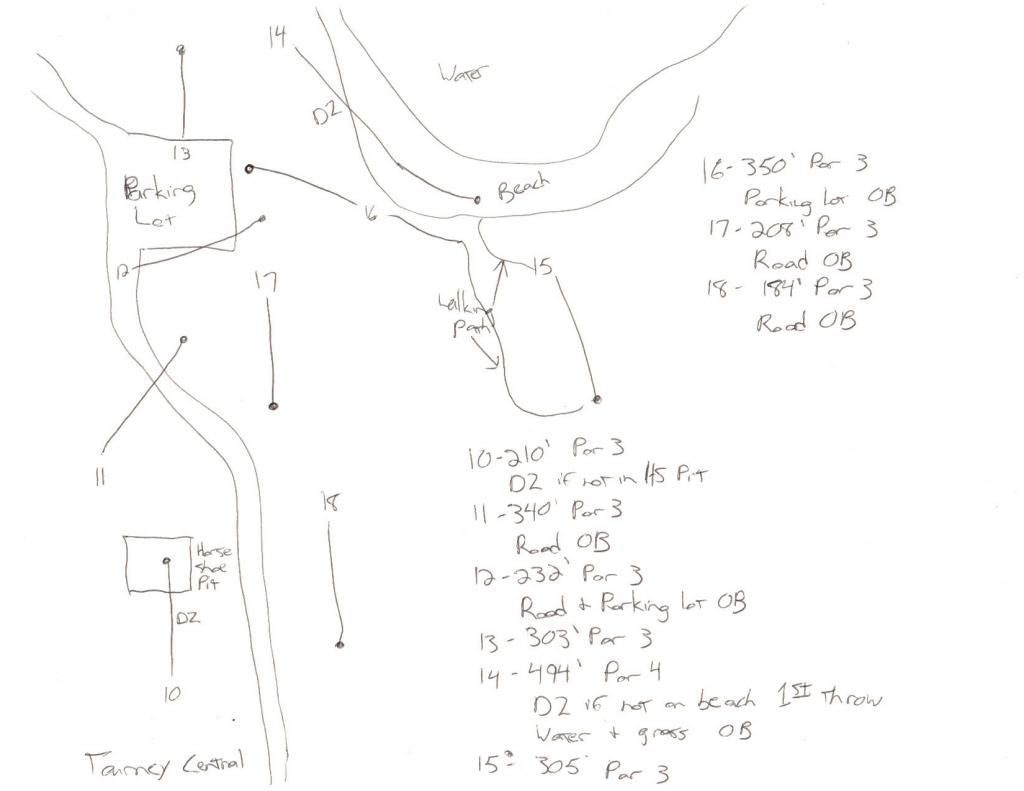 14
Water
D2
13
Parking
Lot
Beach
16
12
17
15
Walking
Path
11
18
Horse
Shoe
Pit
DZ
10
Tourney Central
16-350' Par 3
Parking lot OB
17-208' Par 3
Road OB
18- 184' Par 3
Road OB
10-210' Par 3
DZ if not in HS Pit
11-340' Par 3
Road OB
12-232' Par 3
Road + Parking lot OB
13-303' Par 3
14-494' Par 4
DZ if not on beach 1ST throw
Water + grass OB
15- 305' Par 3